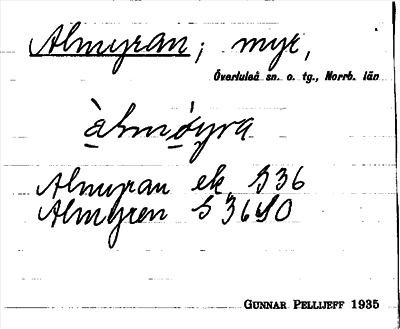 Almyran; myr,
Överluleå sn. o. tg., Norrb. län
àlmóyra
Almyran ek. S 36
Almyren S 36 SO
GUNNAR PELLIJEFF 1935